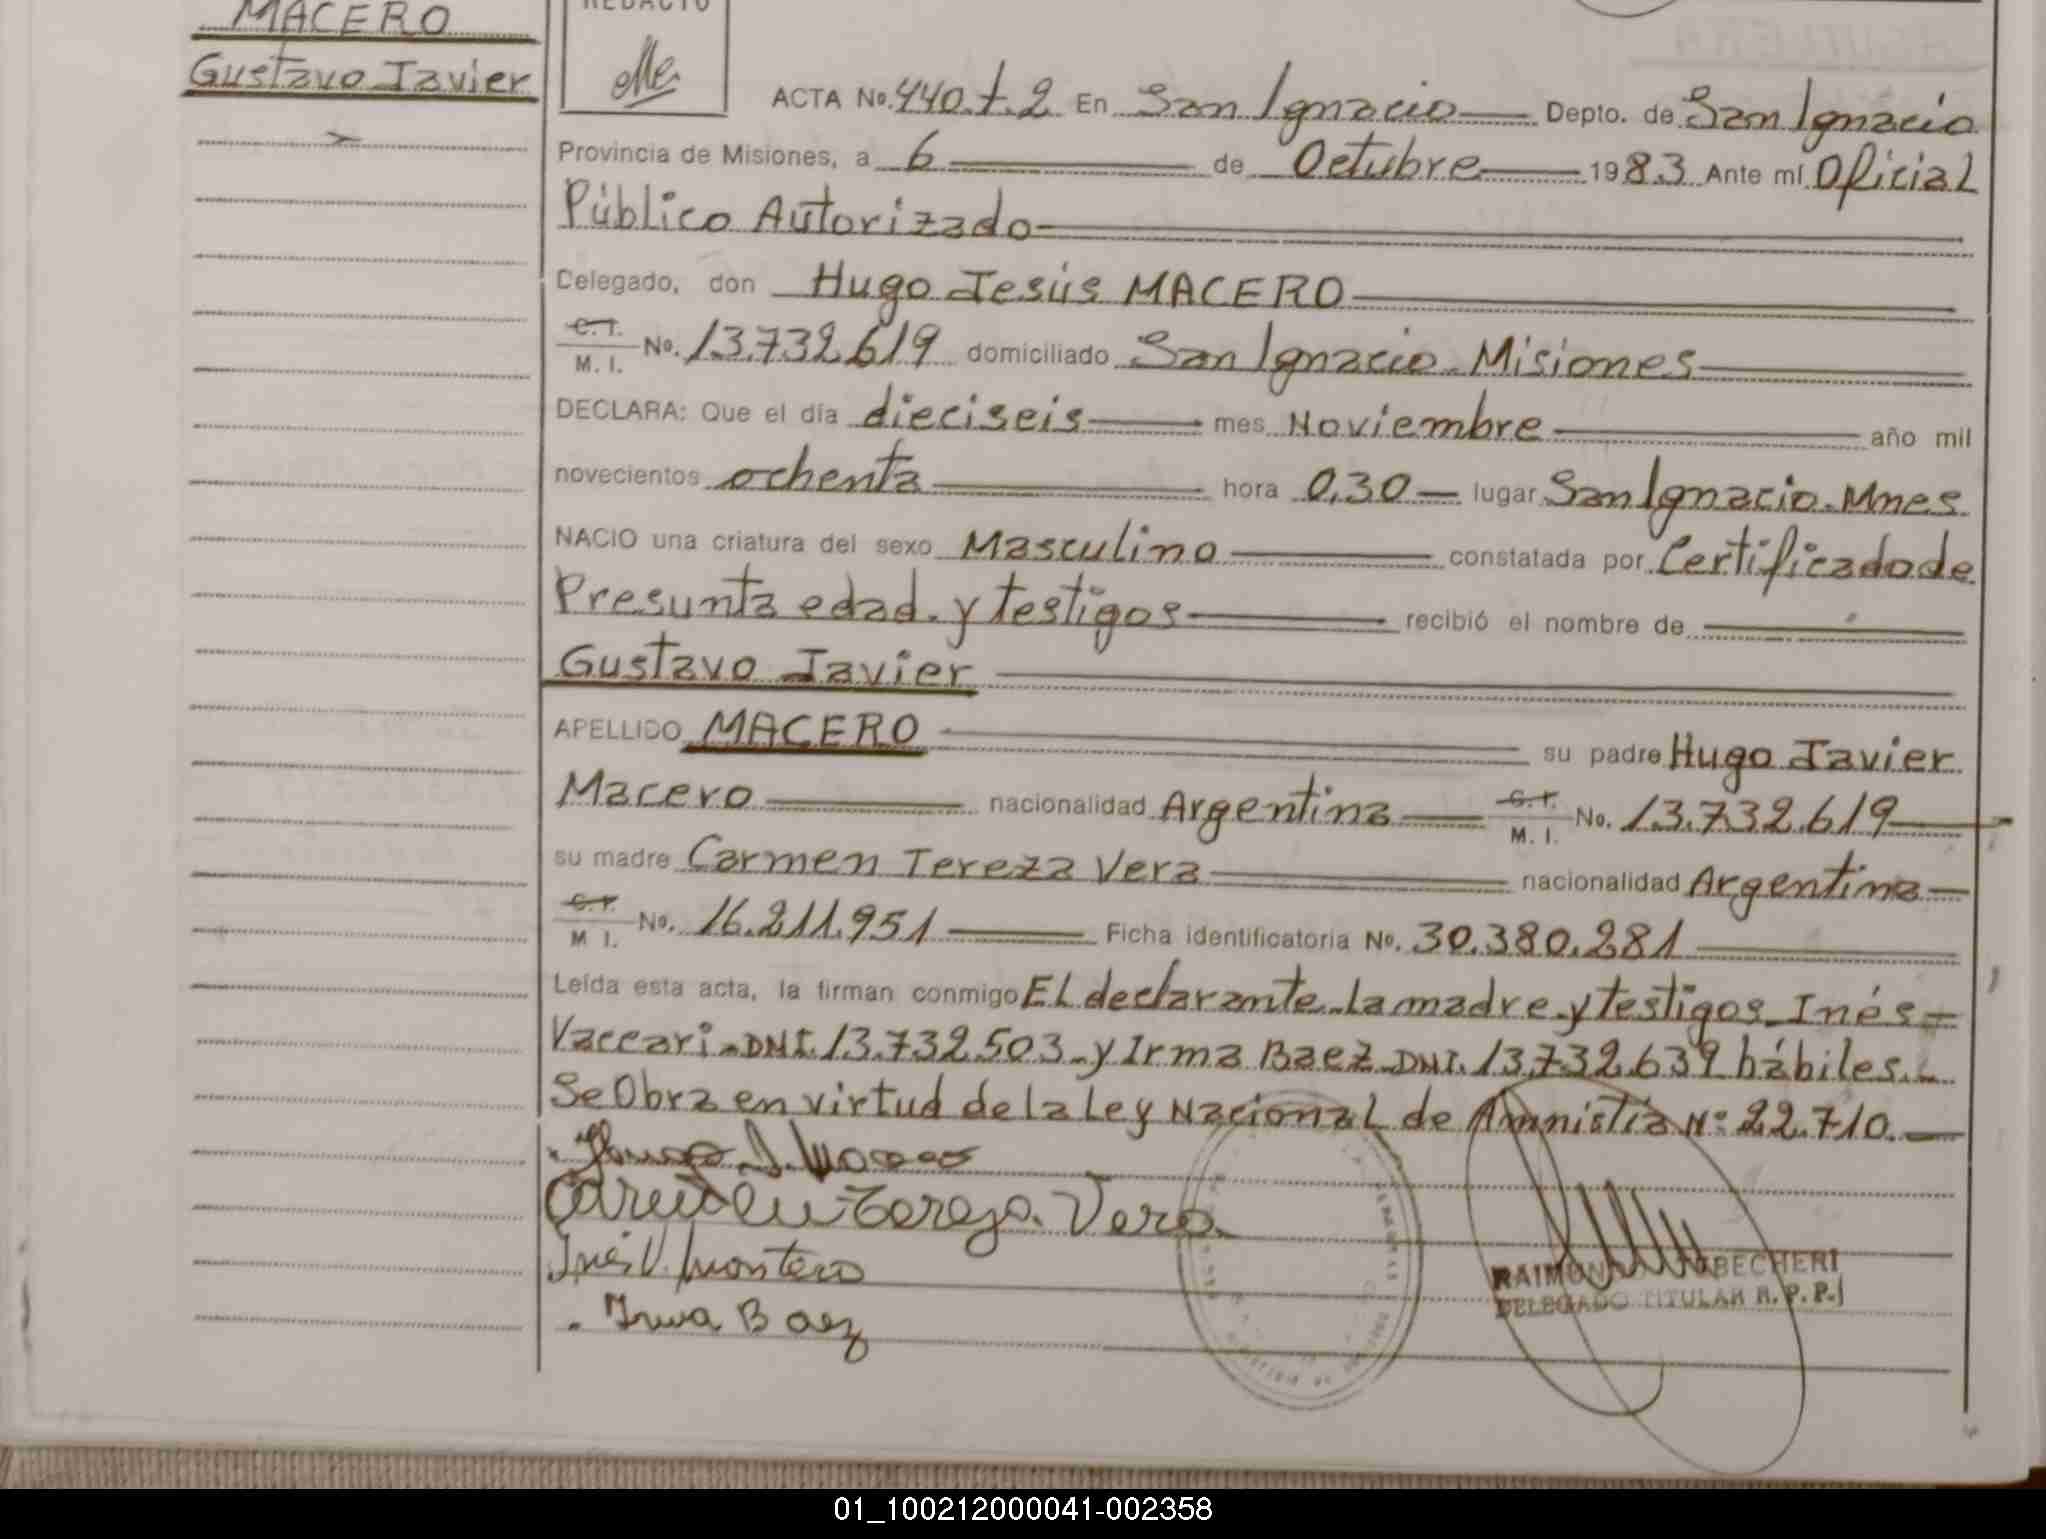 MACERO
Gustavo Javier
REDACTO
ACTA No. 440.t.2 En San Ignacio Depto. de San Ignacio
Provincia de Misiones, a 6 de Octubre 1983 Ante mí Oficial
Público Autorizado
Celegado, don Hugo Jesús MACERO
C.I. M. I. No. 13.732.619 domiciliado San Ignacio. Misiones
DECLARA: Que el día dieciseis mes Noviembre año mil
novecientos ochenta hora 0,30 lugar San Ignacio. Mnes
NACIO una criatura del sexo Masculino constatada por Certificado de
Presunta edad. y testigos recibió el nombre de
Gustavo Javier
APELLIDO MACERO su padre Hugo Javier
Macero nacionalidad Argentina C.I. M. I. No. 13.732.619
su madre Carmen Tereza Vera nacionalidad Argentina
C.I. M I. No. 16.211.951 Ficha identificatoria No. 30.380.281
Leída esta acta, la firman conmigo El declarante. La madre. y testigos Inés
Vaccari. DNI. 13.732.503. y Irma Baez. DNI. 13.732.639 hábiles.
Se Obra en virtud de la Ley Nacional de Amnistía Nº 22.710.
Hugo J. Macero
Carmen Tereza. Vera.
Inés V. Montero
Irma Baez
BECHERI
DELEGADO TITULAR R. P. P.
01_100212000041-002358